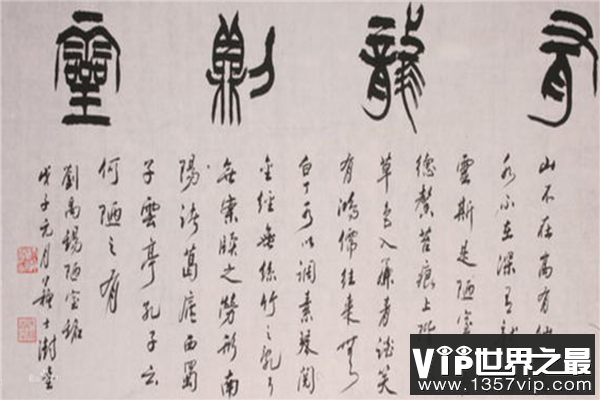 有龍則靈
山不在高有仙
水不在深有龍
靈斯是陋室
德馨苔痕上階
草色入簾青談笑
有鴻儒往來無
白丁可以調素琴閱
金經無絲竹之亂耳
無案牘之勞形南
陽諸葛廬西蜀
子雲亭孔子云
何陋之有
劉禹錫陋室銘
戊子元月蘇士澍書
VIP世界之最
www.1357vip.com